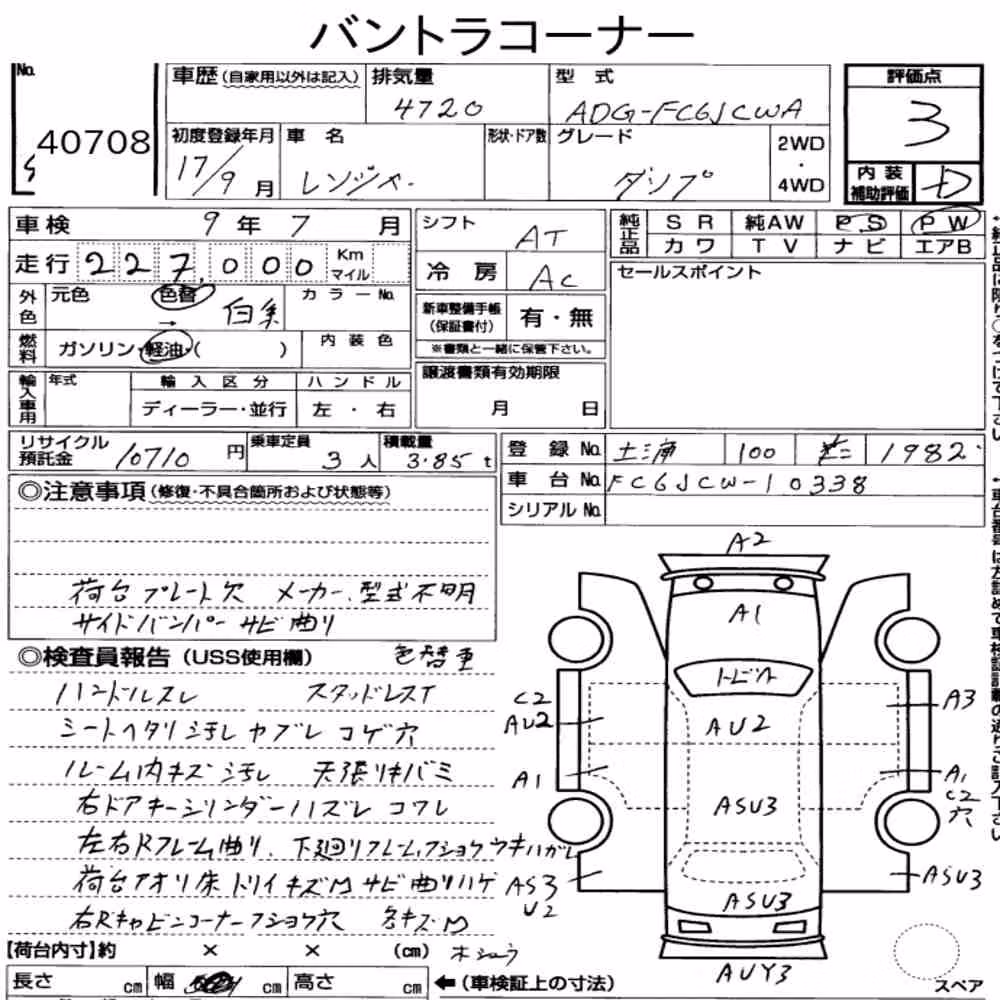 バントラコーナー
No.
40708
車歴 (自家用以外は記入) 排気量 型式 評価点
4720 ADG-FC6JCWA 3
初度登録年月 車名 形状・ドア数 グレード 2WD・4WD
17/9月 レンジャー ダンプ
内装補助評価 D
車検 9年7月
走行 227,000 Km マイル
外色 元色 色替 → 白系 カラーNo.
燃料 ガソリン・軽油・( ) 内装色
輸入車用 年式 輸入区分 ハンドル
ディーラー・並行 左・右
シフト AT
冷房 AC
新車整備手帳 (保証書付) 有・無
※書類と一緒に保管下さい。
譲渡書類有効期限
月 日
純正品 SR 純AW PS PW
カワ TV ナビ エアB
セールスポイント
リサイクル預託金 10710円 乗車定員 3人 積載量 3.85t
登録No. 土浦 100 1982
車台No. FC6JCW-10338
シリアルNo.
◎注意事項 (修復・不具合箇所および状態等)
荷台プレート欠 メーカー、型式不明
サイドバンパー サビ曲り
◎検査員報告 (USS使用欄) 色替車
ハンドルスレ スタッドレスT
シートヘタリ汚レ ヤブレ コゲ穴
ルーム内キズ汚レ 天張リキバミ
右ドアキーシリンダーハズレ コワレ
左右Rフレーム曲り、下廻リフレームフショクウキハガレ
荷台アオリ床トリイキズM サビ曲りハゲ
右Rキャビンコーナーフショク穴 各キズM
【荷台内寸】約 × × (cm)
長さ cm 幅 cm 高さ cm
←(車検証上の寸法)
A2
A1
トビイシ
C2
AU2
AU2
A3
A1
A1
C2
穴
ASU3
AS3
U2
ASU3
ASU3
AUY3
スペア